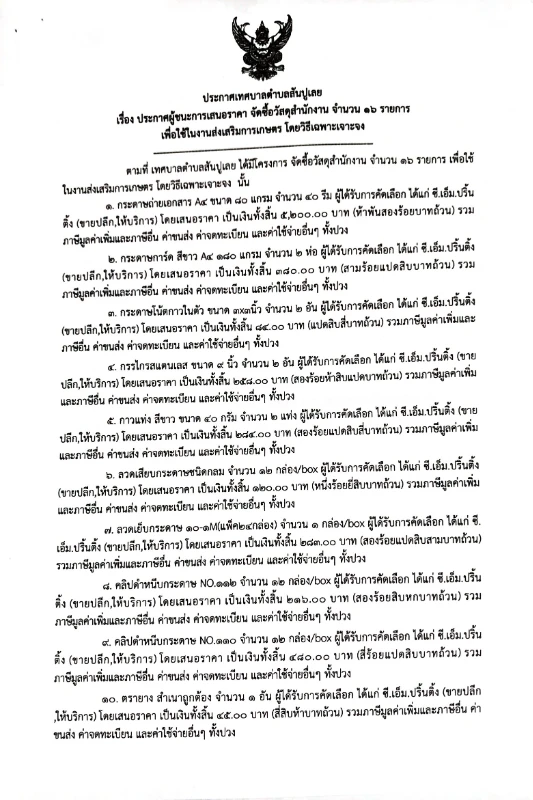 ประกาศเทศบาลตำบลสันปูเลย
เรื่อง ประกาศผู้ชนะการเสนอราคา จัดซื้อวัสดุสำนักงาน จำนวน ๑๖ รายการ
เพื่อใช้ในงานส่งเสริมการเกษตร โดยวิธีเฉพาะเจาะจง
ตามที่ เทศบาลตำบลสันปูเลย ได้มีโครงการ จัดซื้อวัสดุสำนักงาน จำนวน ๑๖ รายการ เพื่อใช้
ในงานส่งเสริมการเกษตร โดยวิธีเฉพาะเจาะจง นั้น
๑. กระดาษถ่ายเอกสาร A๔ ขนาด ๘๐ แกรม จำนวน ๔๐ รีม ผู้ได้รับการคัดเลือก ได้แก่ ซี.เอ็ม.ปริ้น
ติ้ง (ขายปลีก,ให้บริการ) โดยเสนอราคา เป็นเงินทั้งสิ้น ๕,๒๐๐.๐๐ บาท (ห้าพันสองร้อยบาทถ้วน) รวม
ภาษีมูลค่าเพิ่มและภาษีอื่น ค่าขนส่ง ค่าจดทะเบียน และค่าใช้จ่ายอื่นๆ ทั้งปวง
๒. กระดาษการ์ด สีขาว A๔ ๑๘๐ แกรม จำนวน ๒ ห่อ ผู้ได้รับการคัดเลือก ได้แก่ ซี.เอ็ม.ปริ้นติ้ง
(ขายปลีก,ให้บริการ) โดยเสนอราคา เป็นเงินทั้งสิ้น ๓๘๐.๐๐ บาท (สามร้อยแปดสิบบาทถ้วน) รวม
ภาษีมูลค่าเพิ่มและภาษีอื่น ค่าขนส่ง ค่าจดทะเบียน และค่าใช้จ่ายอื่นๆ ทั้งปวง
๓. กระดาษโน้ตกาวในตัว ขนาด ๓x๓นิ้ว จำนวน ๒ อัน ผู้ได้รับการคัดเลือก ได้แก่ ซี.เอ็ม.ปริ้นติ้ง
(ขายปลีก,ให้บริการ) โดยเสนอราคา เป็นเงินทั้งสิ้น ๘๔.๐๐ บาท (แปดสิบสี่บาทถ้วน) รวมภาษีมูลค่าเพิ่มและ
ภาษีอื่น ค่าขนส่ง ค่าจดทะเบียน และค่าใช้จ่ายอื่นๆ ทั้งปวง
๔. กรรไกรสแตนเลส ขนาด ๙ นิ้ว จำนวน ๒ อัน ผู้ได้รับการคัดเลือก ได้แก่ ซี.เอ็ม.ปริ้นติ้ง (ขาย
ปลีก,ให้บริการ) โดยเสนอราคา เป็นเงินทั้งสิ้น ๒๕๘.๐๐ บาท (สองร้อยห้าสิบแปดบาทถ้วน) รวมภาษีมูลค่าเพิ่ม
และภาษีอื่น ค่าขนส่ง ค่าจดทะเบียน และค่าใช้จ่ายอื่นๆ ทั้งปวง
๕. กาวแท่ง สีขาว ขนาด ๔๐ กรัม จำนวน ๒ แท่ง ผู้ได้รับการคัดเลือก ได้แก่ ซี.เอ็ม.ปริ้นติ้ง (ขาย
ปลีก,ให้บริการ) โดยเสนอราคา เป็นเงินทั้งสิ้น ๒๘๔.๐๐ บาท (สองร้อยแปดสิบสี่บาทถ้วน) รวมภาษีมูลค่าเพิ่ม
และภาษีอื่น ค่าขนส่ง ค่าจดทะเบียน และค่าใช้จ่ายอื่นๆ ทั้งปวง
๖. ลวดเสียบกระดาษชนิดกลม จำนวน ๑๒ กล่อง/box ผู้ได้รับการคัดเลือก ได้แก่ ซี.เอ็ม.ปริ้นติ้ง
(ขายปลีก,ให้บริการ) โดยเสนอราคา เป็นเงินทั้งสิ้น ๑๒๐.๐๐ บาท (หนึ่งร้อยยี่สิบบาทถ้วน) รวมภาษีมูลค่าเพิ่ม
และภาษีอื่น ค่าขนส่ง ค่าจดทะเบียน และค่าใช้จ่ายอื่นๆ ทั้งปวง
๗. ลวดเย็บกระดาษ ๑๐-๑M(แพ็ค๒๔กล่อง) จำนวน ๑ กล่อง/box ผู้ได้รับการคัดเลือก ได้แก่ ซี.
เอ็ม.ปริ้นติ้ง (ขายปลีก,ให้บริการ) โดยเสนอราคา เป็นเงินทั้งสิ้น ๒๘๓.๐๐ บาท (สองร้อยแปดสิบสามบาทถ้วน)
รวมภาษีมูลค่าเพิ่มและภาษีอื่น ค่าขนส่ง ค่าจดทะเบียน และค่าใช้จ่ายอื่นๆ ทั้งปวง
๘. คลิปดำหนีบกระดาษ NO.๑๑๒ จำนวน ๑๒ กล่อง/box ผู้ได้รับการคัดเลือก ได้แก่ ซี.เอ็ม.ปริ้น
ติ้ง (ขายปลีก,ให้บริการ) โดยเสนอราคา เป็นเงินทั้งสิ้น ๒๑๖.๐๐ บาท (สองร้อยสิบหกบาทถ้วน) รวม
ภาษีมูลค่าเพิ่มและภาษีอื่น ค่าขนส่ง ค่าจดทะเบียน และค่าใช้จ่ายอื่นๆ ทั้งปวง
๙. คลิปดำหนีบกระดาษ NO.๑๑๐ จำนวน ๑๒ กล่อง/box ผู้ได้รับการคัดเลือก ได้แก่ ซี.เอ็ม.ปริ้น
ติ้ง (ขายปลีก,ให้บริการ) โดยเสนอราคา เป็นเงินทั้งสิ้น ๔๘๐.๐๐ บาท (สี่ร้อยแปดสิบบาทถ้วน) รวม
ภาษีมูลค่าเพิ่มและภาษีอื่น ค่าขนส่ง ค่าจดทะเบียน และค่าใช้จ่ายอื่นๆ ทั้งปวง
๑๐. ตรายาง สำเนาถูกต้อง จำนวน ๑ อัน ผู้ได้รับการคัดเลือก ได้แก่ ซี.เอ็ม.ปริ้นติ้ง (ขายปลีก
,ให้บริการ) โดยเสนอราคา เป็นเงินทั้งสิ้น ๔๕.๐๐ บาท (สี่สิบห้าบาทถ้วน) รวมภาษีมูลค่าเพิ่มและภาษีอื่น ค่า
ขนส่ง ค่าจดทะเบียน และค่าใช้จ่ายอื่นๆ ทั้งปวง